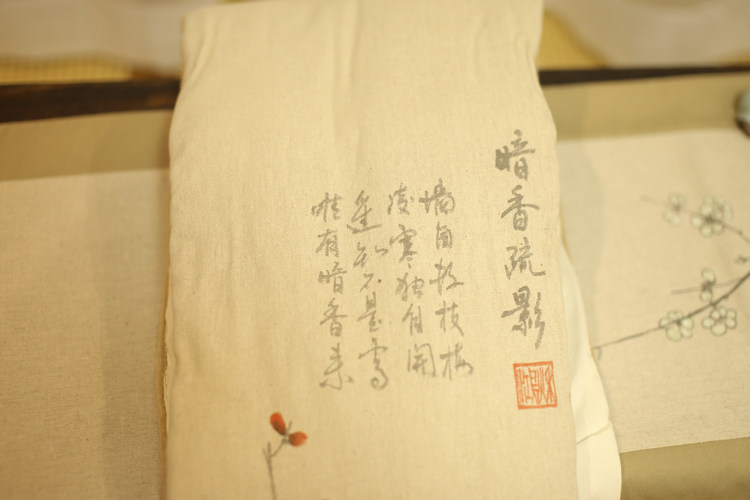 暗香疏影
墙角数枝梅
凌寒独自開
遥知不是雪
唯有暗香来